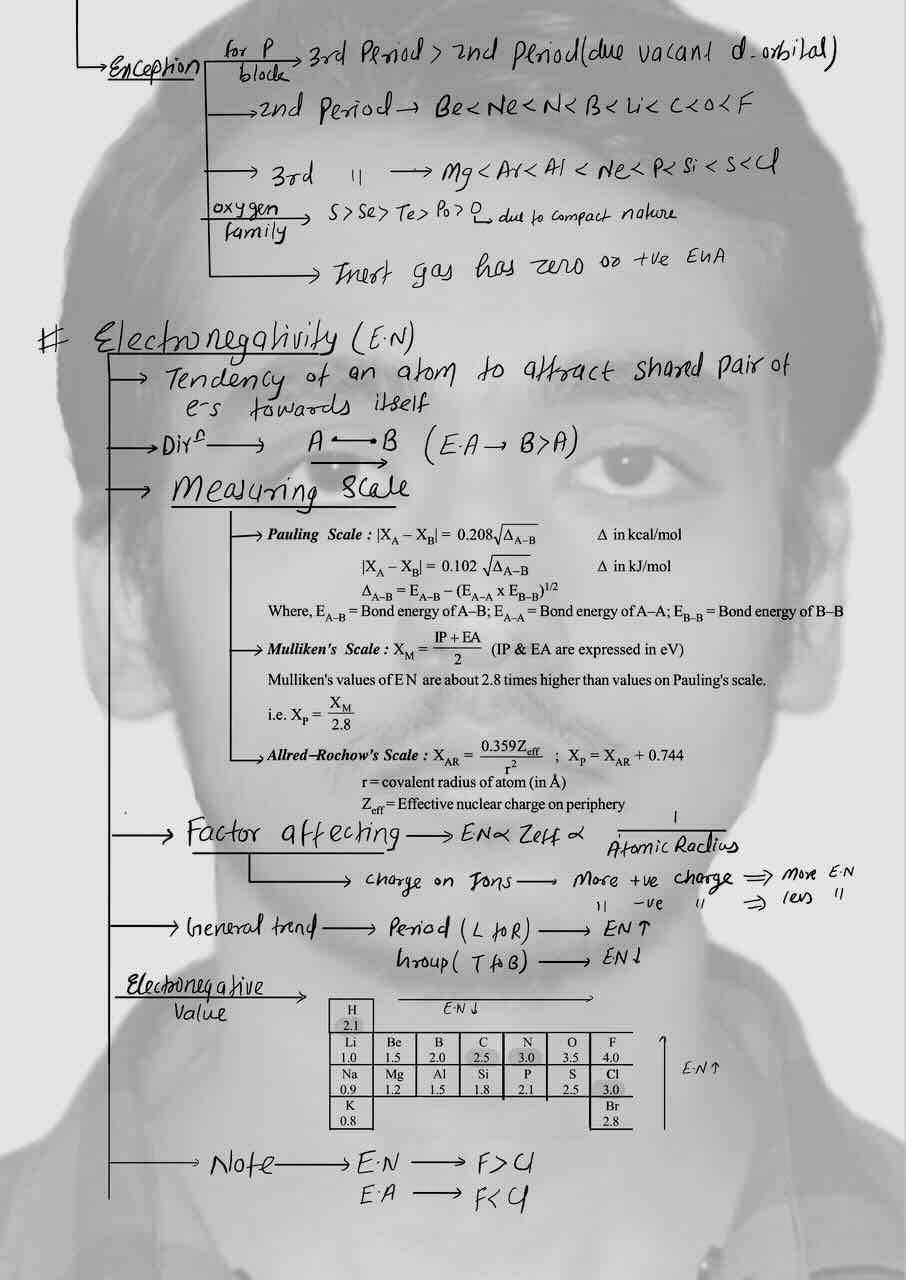 Exception for P block → 3rd Period > 2nd Period (due vacant d-orbital)
→ 2nd Period → Be < Ne < N < B < Li < C < O < F
→ 3rd " → Mg < Ar < Al < Ne < P < Si < S < Cl
oxygen family → S > Se > Te > Po > O due to compact nature
→ Inert gas has zero or +ve EnA
# Electronegativity (E.N)
→ Tendency of an atom to attract shared pair of
e-s towards itself
→ Dirⁿ → A — B (E.A → B > A)
→ Measuring Scale
→ Pauling Scale : |X_A – X_B| = 0.208√Δ_A–B Δ in kcal/mol
|X_A – X_B| = 0.102 √Δ_A–B Δ in kJ/mol
Δ_A–B = E_A–B – (E_A–A x E_B–B)^1/2
Where, E_A–B = Bond energy of A–B; E_A–A = Bond energy of A–A; E_B–B = Bond energy of B–B
→ Mulliken's Scale : X_M = (IP + EA)/2 (IP & EA are expressed in eV)
Mulliken's values of E N are about 2.8 times higher than values on Pauling's scale.
i.e. X_P = X_M/2.8
→ Allred–Rochow's Scale : X_AR = 0.359Z_eff/r² ; X_P = X_AR + 0.744
r = covalent radius of atom (in Å)
Z_eff = Effective nuclear charge on periphery
→ Factor affecting → EN ∝ Zeff ∝ 1/Atomic Radius
→ charge on Ions — More +ve charge ⇒ more E.N
" -ve " ⇒ less "
→ General trend → Period (L to R) → EN↑
Group (T to B) → EN↓
Electronegative
Value →
E.N↓
H
2.1
Li Be B C N O F
1.0 1.5 2.0 2.5 3.0 3.5 4.0
Na Mg Al Si P S Cl
0.9 1.2 1.5 1.8 2.1 2.5 3.0
E.N↑
K Br
0.8 2.8
→ Note → E.N → F > Cl
E.A → F < Cl